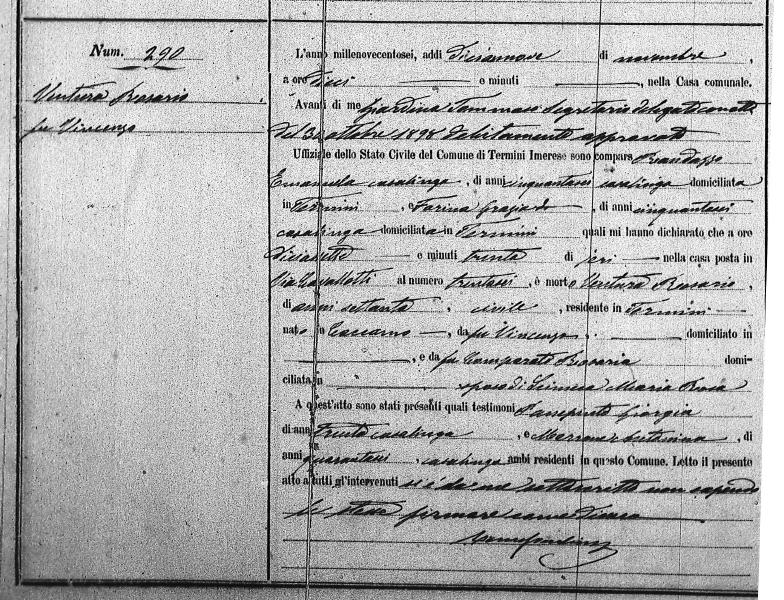 Num. 290
Ventura Rosario
fu Vincenzo
L'anno millenovecentosei, addi diciannove di novembre,
a ore dieci e minuti , nella Casa comunale.
Avanti di me Giardina Tommaso Segretario delegato con atto
del 31 ottobre 1898 debitamente approvato
Uffiziale dello Stato Civile del Comune di Termini Imerese sono compars Randazzo
Emanuela casalinga, di anni cinquantasei casalinga domiciliata
in Termini, e Farina Grazia, di anni cinquantasei
casalinga domiciliata in Termini quali mi hanno dichiarato che a ore
diciasette e minuti trenta di jeri nella casa posta in
Via Cavallotti al numero trentasei, è morto Ventura Rosario,
di anni settanta, civile, residente in Termini
nato in Caccamo, da fu Vincenzo, domiciliato in
, e da fu Comparato Rosaria domi-
ciliata in sposo di Scimeca Maria Rosa
A quest'atto sono stati presenti quali testimoni Giorgia
di anni trenta casalinga, e, di
anni quarantasei, casalinga ambi residenti in questo Comune. Letto il presente
atto a tutti gl'intervenuti si è da me sottoscritto non sapendo
le stesse firmare come dicono